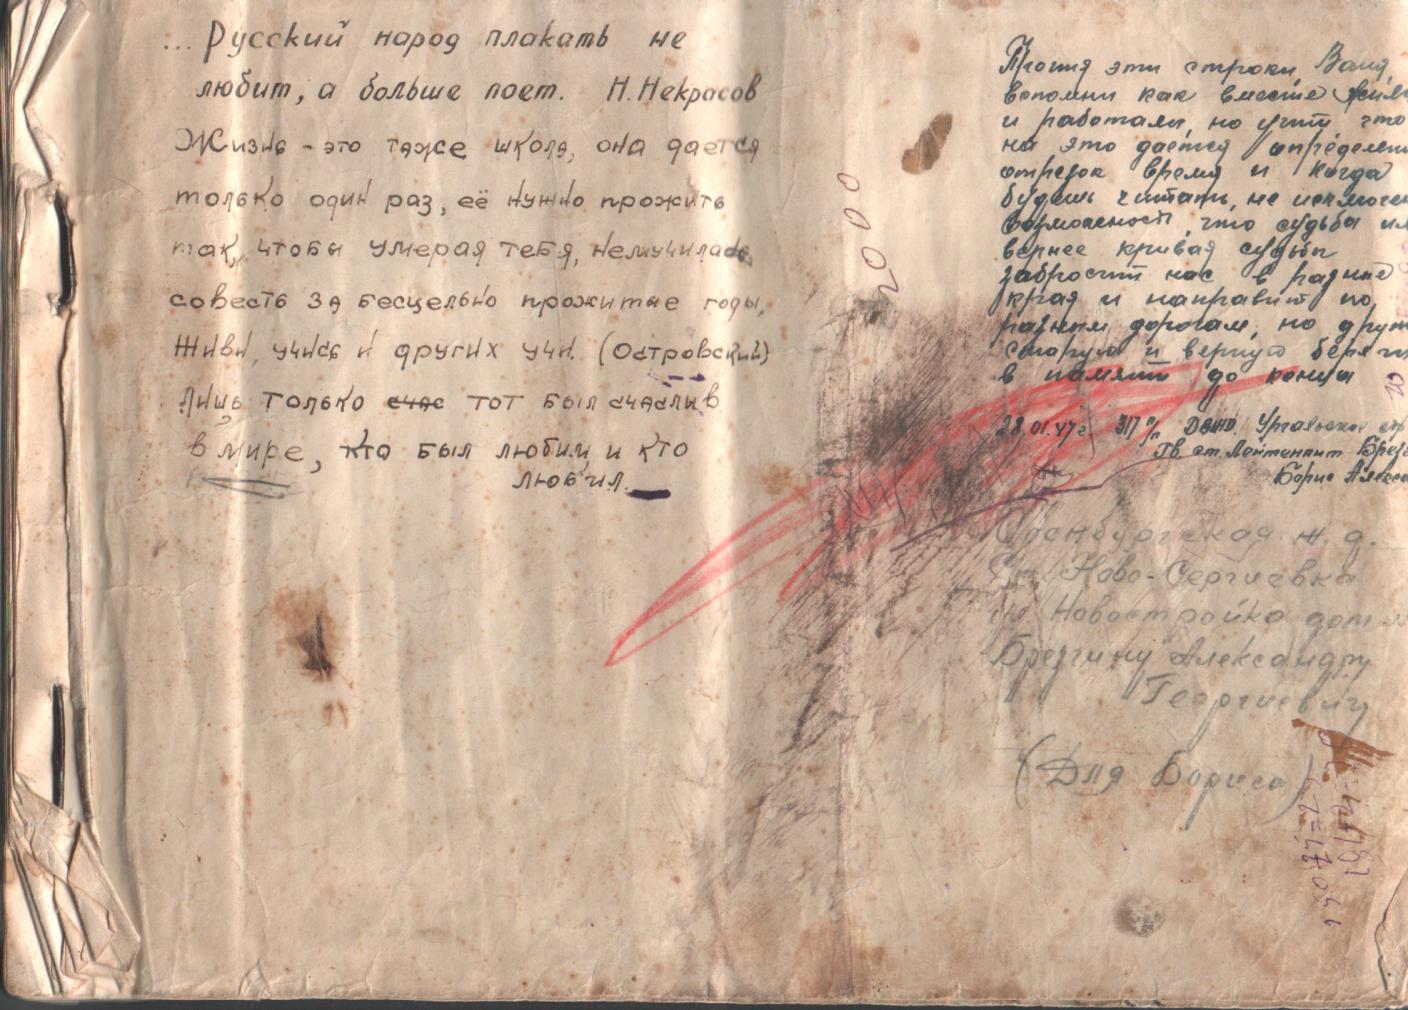 ... Русский народ плакать не
любит, а больше поет. Н. Некрасов
Жизнь - это тоже школа, она дается
только один раз, её нужно прожить
так, чтобы умерая тебя, немучилась
совесть за бесцельно прожитые годы,
Живи, учись и других учи. (Островский)
Лишь только счас тот был счаслив
в мире, кто был любим и кто
любил.
2000
эти строки, Ваня,
вспомни как вместе жили
и работали, но учти что
на это даётся
отрезок время и когда
будешь читать, не
возможность, что судьба
вернее кривая судьбы
забросит нас в разные
края и направит по
разным дорогам, но
старую и
в памяти до конца
28.01.47г. 317 Ургальское
Гв. ст. Лейтенант
Борис
Оренбургская ж.д.
Ст. Ново-Сергиевка
ул Новостройка дом
Брезгину Александру
Георгиевичу
(Для Бориса)